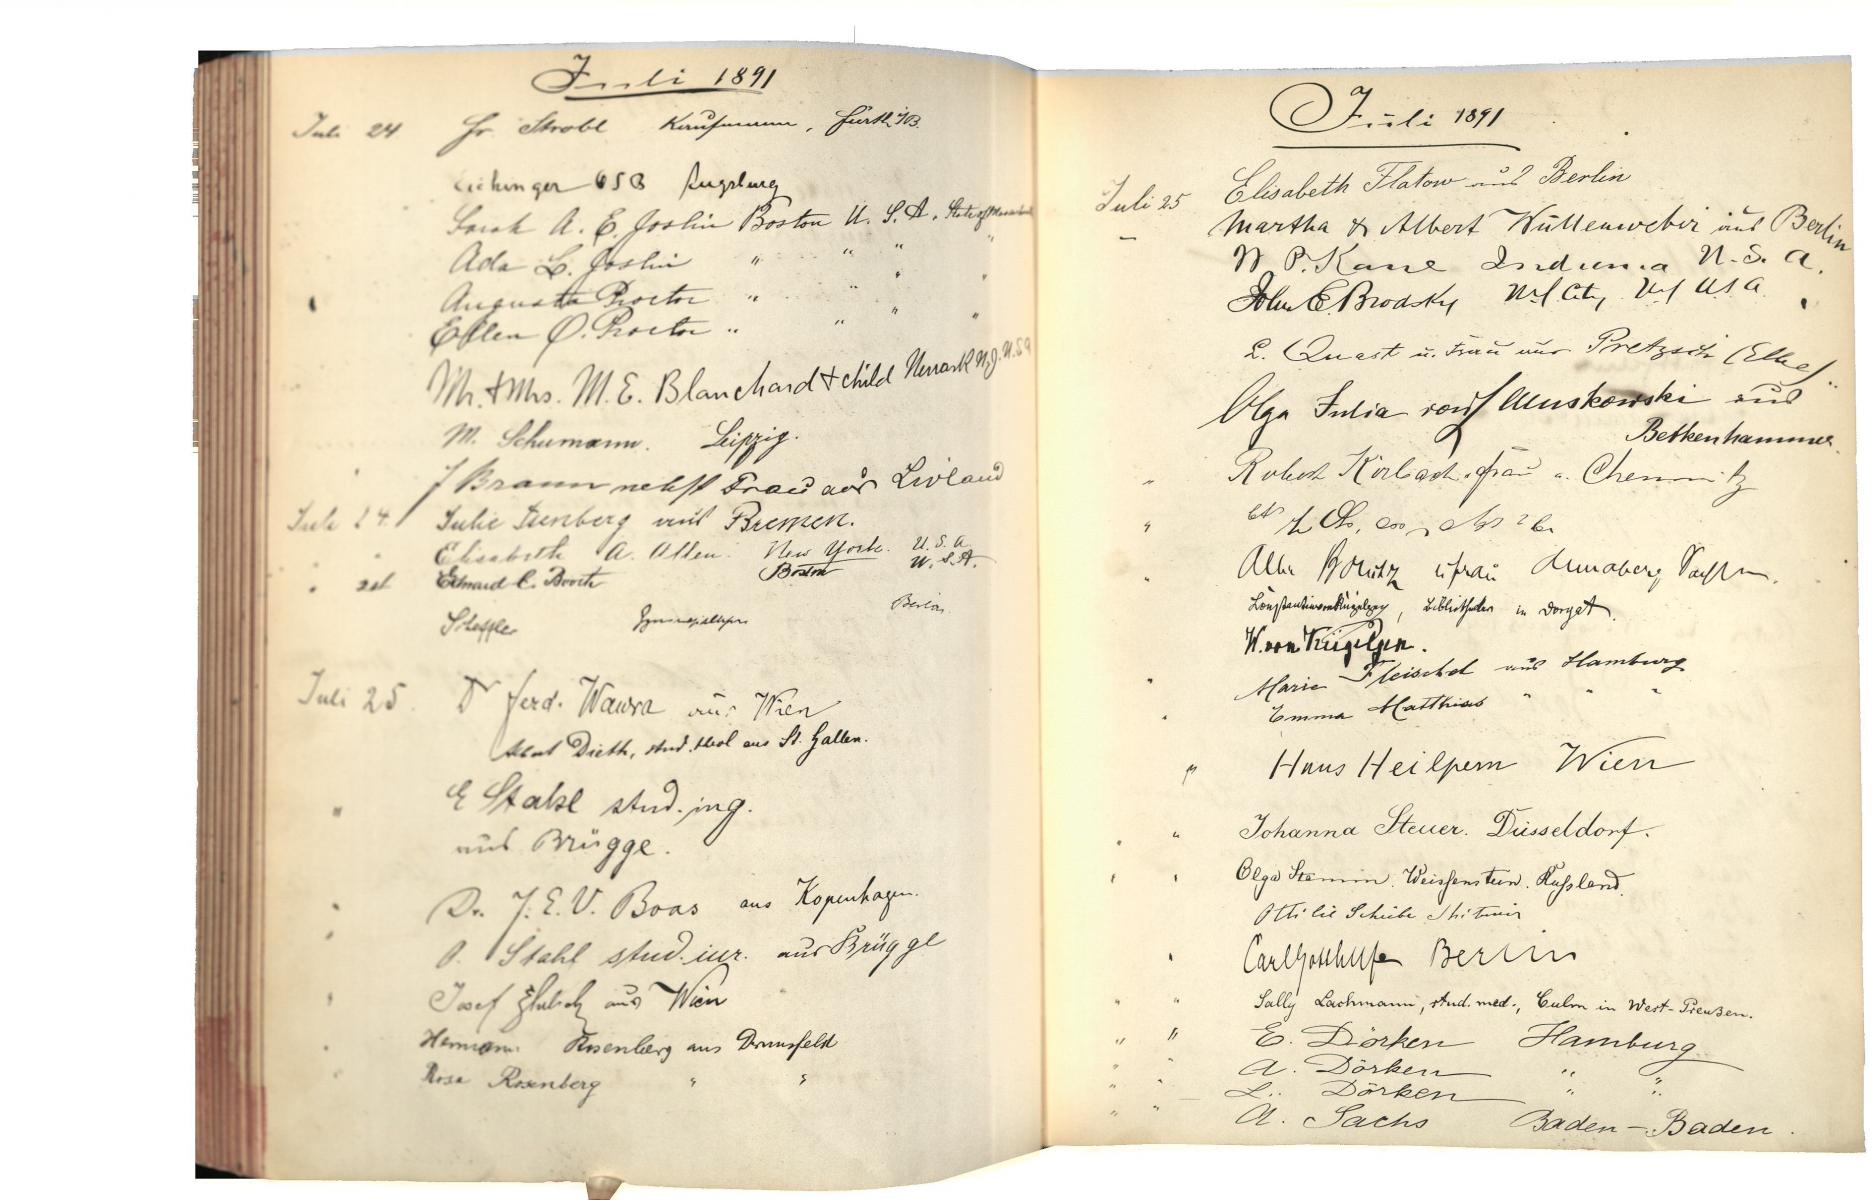 Juli 1891
Juli 24 Fr. Strobl Kaufmann, Fürth i/B.
OSB Augsburg
Sarah A. E. Joslin Boston U. S. A. State of
Ada L. Joslin " " "
Augusta Proctor " " " "
Ellen O. Proctor " " " "
Mr. & Mrs. M. E. Blanchard & child Newark N.J. U.S.A
M. Schumann. Leipzig.
J Braun nebst Frau aus Livland
Juli 24. Julie Isenberg aus Bremen.
" Elisabeth A. Allen. New York. U. S. A.
" Edward C. Booth Boston U. S. A.
Scheffler Berlin
Juli 25. Dr Ferd. Wawra aus Wien
Dieth, stud. theol aus St. Gallen.
" E Stahl stud. ing.
aus Brügge.
" Dr. J. E. V. Boas aus Kopenhagen.
" O. Stahl stud. iur. aus Brügge
" Josef aus Wien
Hermann Rosenberg aus Dransfeld
" Rosa Rosenberg " "
Juli 1891
Juli 25 Elisabeth Flatow aus Berlin
Martha & Albert Wüllenweber aus Berlin
W P. Kane Indiana U. S. A.
John E. Brodsky N.Y. City N.Y. U.S.A.
L. Quast u. Frau aus Pretzsch (Elbe)
Olga Julia von Muskowski aus
Betkenhammer.
" Robert Körbach u. Frau a. Chemnitz
"
" u Frau Annaberg Sachsen.
Bibliothekar in Dorpat.
W. von Kügelgen.
" Marie Fleischel aus Hamburg
" Emma Matthias " " "
" Hans Heilpern Wien
" " Johanna Steuer. Düsseldorf.
" " Olga Stamm. Weissenstein. Russland.
Ottilie Scheibe
" Carl Gotthilf Berlin
" " Sally Lachmann, stud. med., Culm in West-Preußen.
" " E. Dörken Hamburg
" " A. Dörken " "
" " L. Dörken " "
" " A. Sachs Baden-Baden.